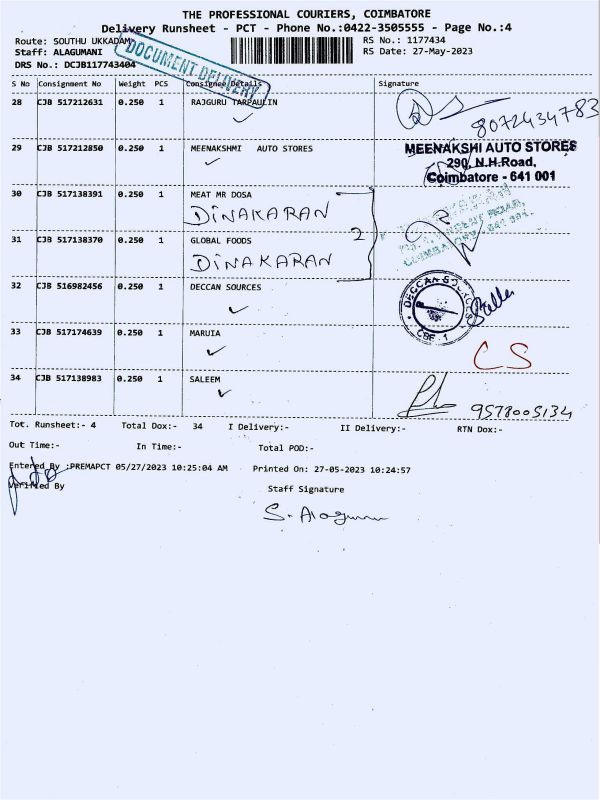 THE PROFESSIONAL COURIERS, COIMBATORE
Delivery Runsheet - PCT - Phone No.:0422-3505555 - Page No.:4
Route: SOUTHU UKKADAM
RS No.: 1177434
Staff: ALAGUMANI
RS Date: 27-May-2023
DRS No.: DCJB117743404
DOCUMENT DELIVERY
S No Consignment No Weight PCS Consignee Details Signature
28 CJB 517212631 0.250 1 RAJGURU TARPAULIN
8072434783
29 CJB 517212850 0.250 1 MEENAKSHMI AUTO STORES
MEENAKSHI AUTO STORES
290, N.H.Road,
Coimbatore - 641 001
30 CJB 517138391 0.250 1 MEAT MR DOSA
DINAKARAN
2
31 CJB 517138370 0.250 1 GLOBAL FOODS
DINAKARAN
32 CJB 516982456 0.250 1 DECCAN SOURCES
CBE - 1
33 CJB 517174639 0.250 1 MARUIA
CS
34 CJB 517138983 0.250 1 SALEEM
9578005134
Tot. Runsheet:- 4 Total Dox:- 34 I Delivery:- II Delivery:- RTN Dox:-
Out Time:- In Time:- Total POD:-
Entered By :PREMAPCT 05/27/2023 10:25:04 AM Printed On: 27-05-2023 10:24:57
Verified By Staff Signature